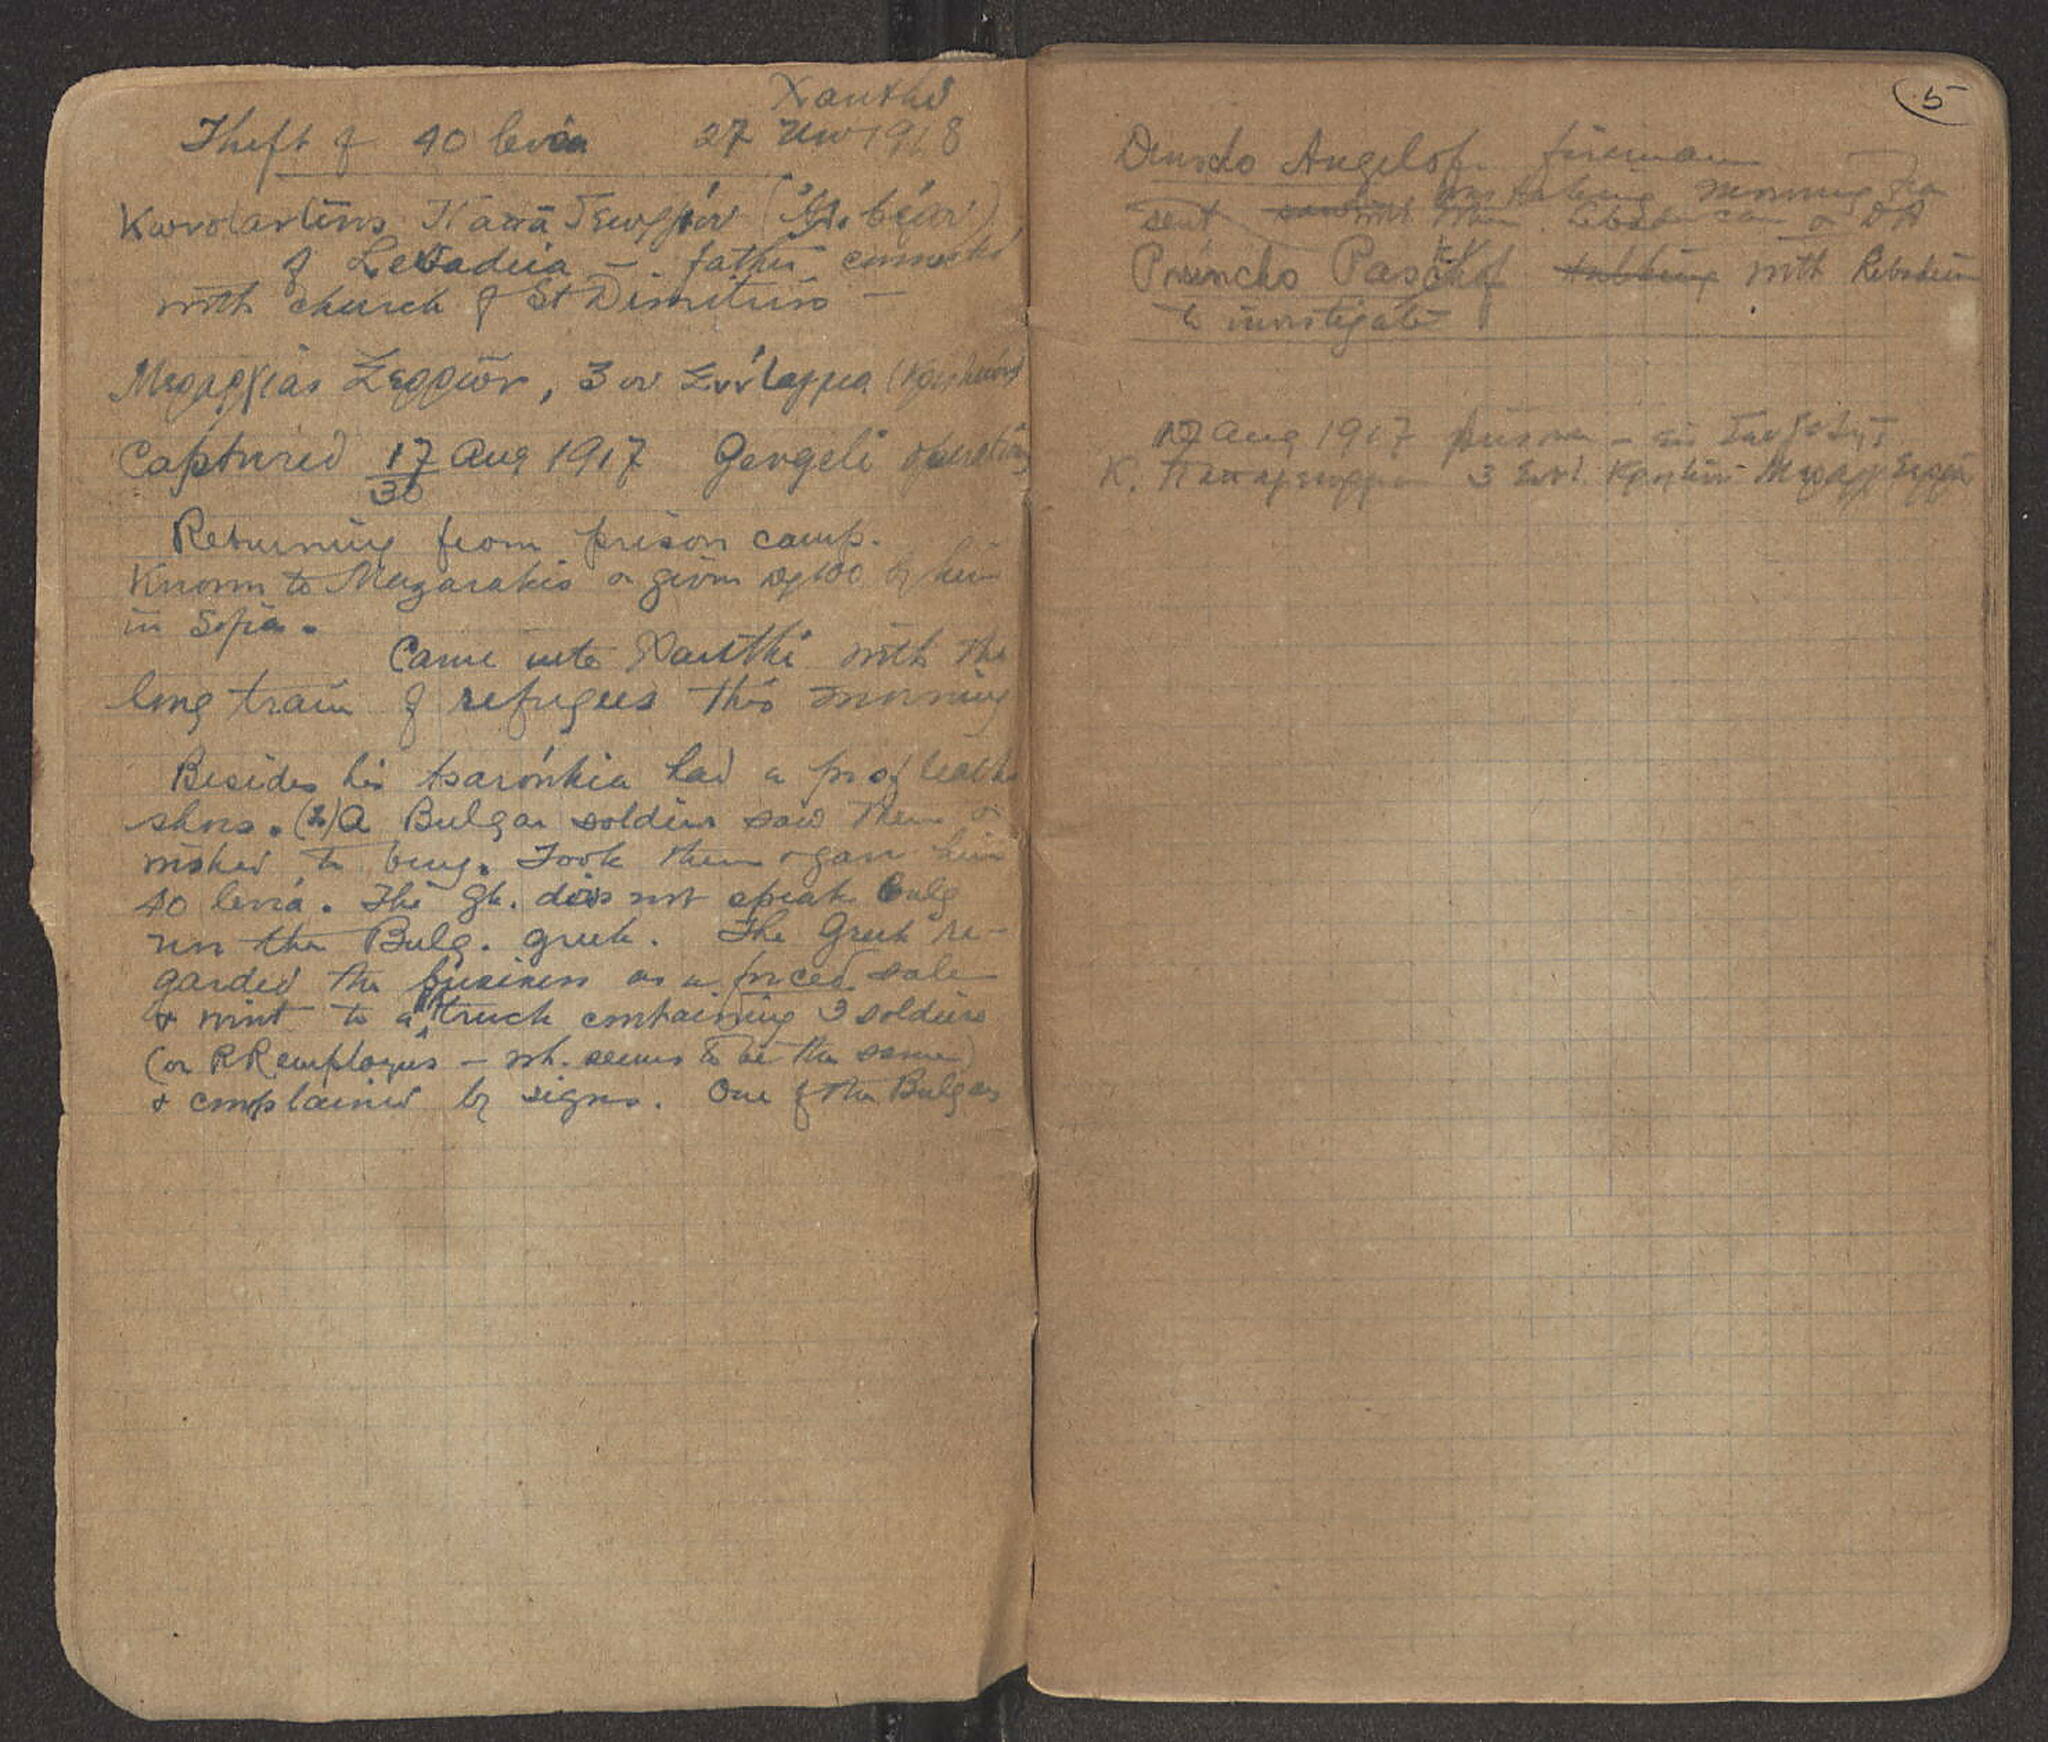 Xanthi
Theft of 40 leva 27 Nov 1918
Κωνσταντῖνος Παπᾶ Γεωργίου
of Levadeia — father connected
with church of St Dimitrios —
Μεραρχίας Σερρῶν, 3ον Σύνταγμα
Captured 17/30 Aug 1917 Gevgeli operations
Returning from prison camp.
Known to Mazarakis & given by him
in Sofia.
Came into Xanthi with the
long train of refugees this morning
Besides his tsaroúkia had a pr of leather
shoes. (2) A Bulgar soldier saw them &
wished to buy. Took them & gave him
40 leva. The Gk. does not speak Bulg
nor the Bulg. Greek. The Greek re-
garded the business as a forced sale
& went to a truck containing 3 soldiers
(or RR employees — wh. seems to be the same)
& complained by signs. One of the Bulgars
5
Angelof. fireman
sent morning
with
to investigate
17 Aug 1917
Κ. Παπαγεωργίου 3 Συντ.